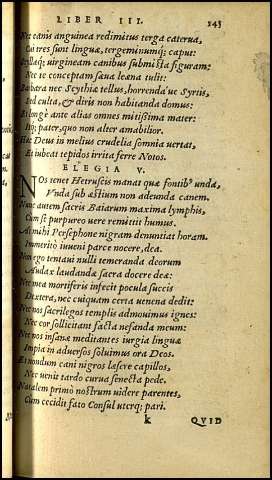 LIBER III. 143
Nec canis anguinea redimitus terga caterua,
Cui tres sunt linguæ, tergeminumq; caput:
Scyllaq; uirgineam canibus submista figuram:
Nec te conceptam sæua leæna tulit:
Barbara nec Scythiæ tellus, horrenda'ue Syrtis,
Sed culta, & diris non habitanda domus:
Et longè ante alias omnes mitißima mater:
Isq; pater, quo non alter amabilior.
Hæc Deus in melius crudelia somnia uertat,
Et iubeat tepidos irrita ferre Notos.
ELEGIA V.
NOs tenet Hetruscis manat quæ fontib' unda,
Vnda sub æstium non adeunda canem.
Nunc autem sacris Baiarum maxima lymphis,
Cum se purpureo uere remittit humus.
At mihi Persephone nigram denuntiat horam.
Immeritò iuueni parce nocere, dea.
Non ego tentaui nulli temeranda deorum
Audax laudandæ sacra docere deæ:
Nec mea mortiferis infecit pocula succis
Dextera, nec cuiquam certa uenena dedit:
Nec nos sacrilegos templis admouimus ignes:
Nec cor sollicitant facta nefanda meum:
Nec nos insanæ meditantes iurgia linguæ
Impia in aduersos soluimus ora Deos.
Et nondum cani nigros læsere capillos,
Nec uenit tardo curua senecta pede.
Natalem primò nostrum uidere parentes,
Cum cecidit fato Consul uterq; pari.
k QVID